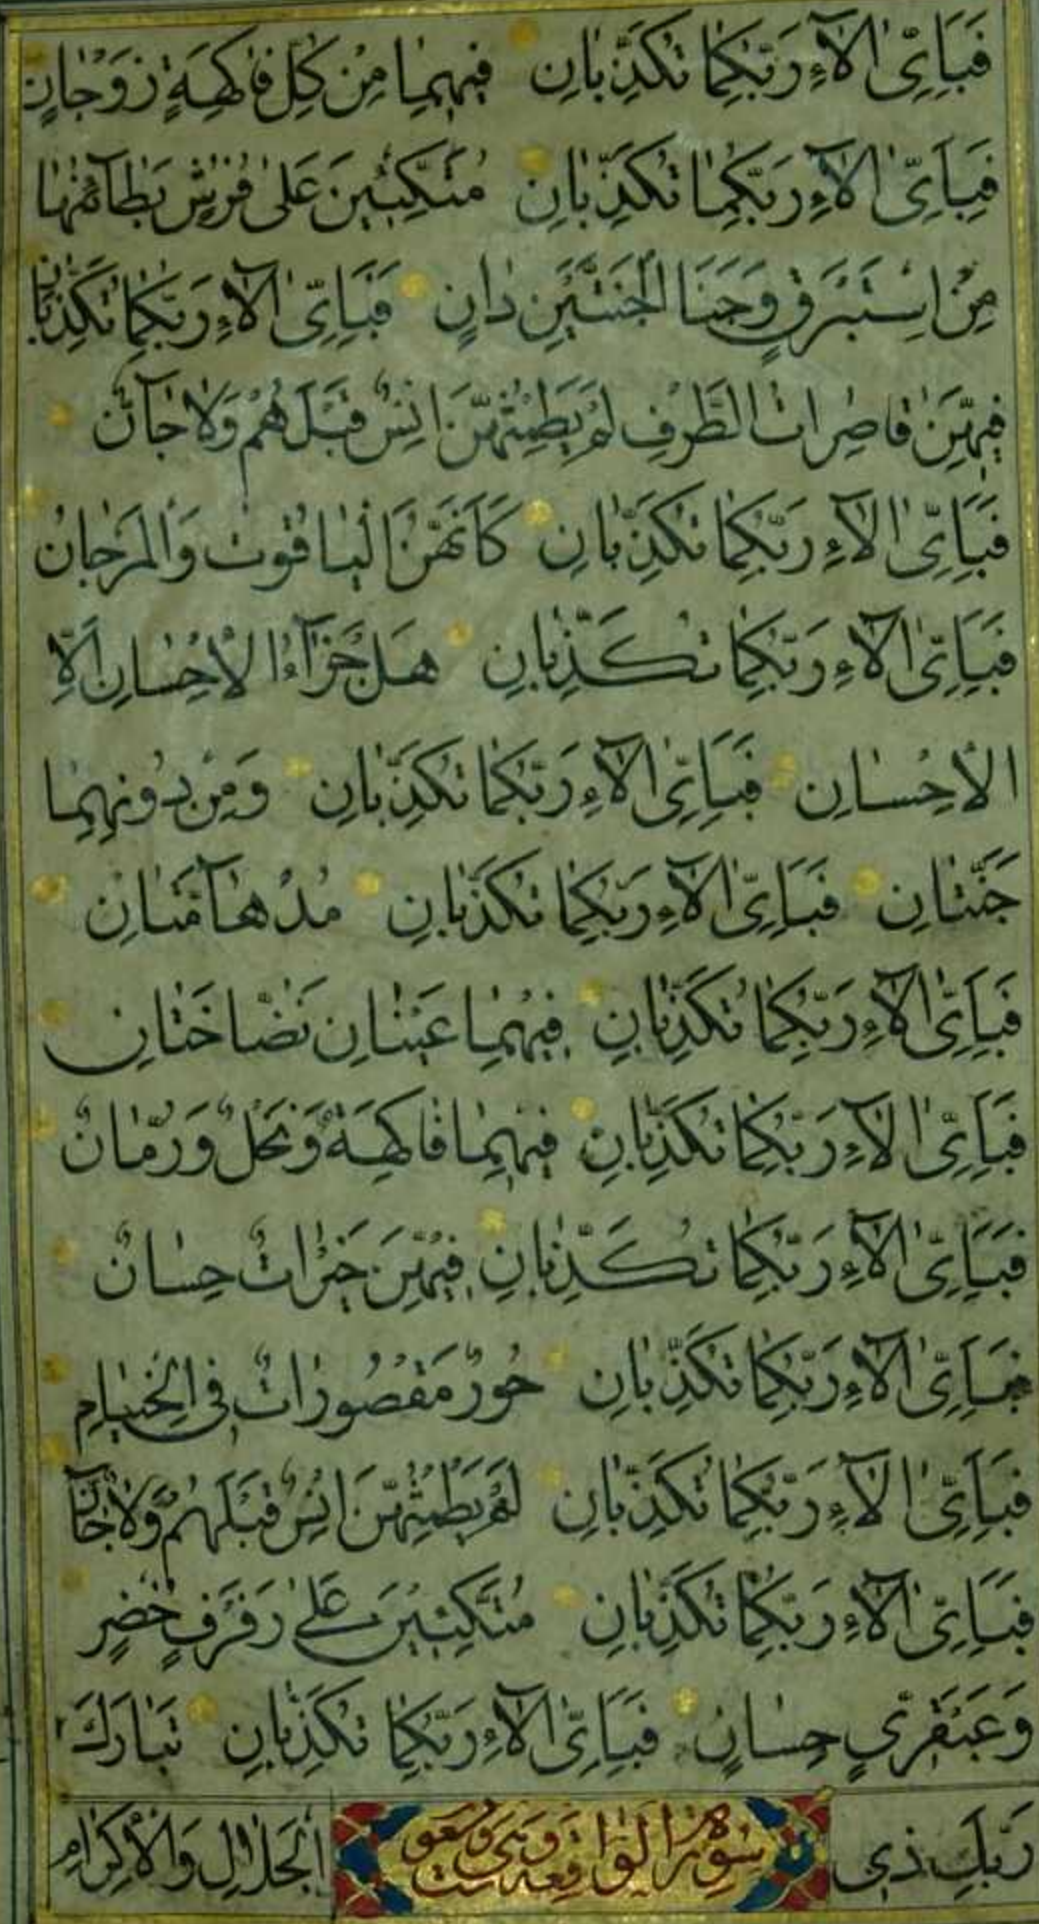 فَبِاَيِّ اٰلَآءِ رَبِّكُمٰا تُكَذِّبٰانِ فِيهِمٰا مِنْ كُلِّ فٰاكِهَةٍ زَوْجٰانِ
فَبِاَيِّ اٰلَآءِ رَبِّكُمٰا تُكَذِّبٰانِ مُتَّكِئِينَ عَلٰى فُرُشٍ بَطٰآئِنُهٰا
مِنْ اِسْتَبْرَقٍ وَجَنَا الْجَنَّتَيْنِ دٰانٍ فَبِاَيِّ اٰلَآءِ رَبِّكُمٰا تُكَذِّبٰانِ
فِيهِنَّ قٰاصِرٰاتُ الطَّرْفِ لَمْ يَطْمِثْهُنَّ اِنْسٌ قَبْلَهُمْ وَلٰا جٰآنٌّ
فَبِاَيِّ اٰلَآءِ رَبِّكُمٰا تُكَذِّبٰانِ كَاَنَّهُنَّ الْيٰاقُوتُ وَالْمَرْجٰانُ
فَبِاَيِّ اٰلَآءِ رَبِّكُمٰا تُكَذِّبٰانِ هَلْ جَزٰآءُ الْاِحْسٰانِ اِلَّا
الْاِحْسٰانِ فَبِاَيِّ اٰلَآءِ رَبِّكُمٰا تُكَذِّبٰانِ وَمِنْ دُونِهِمٰا
جَنَّتٰانِ فَبِاَيِّ اٰلَآءِ رَبِّكُمٰا تُكَذِّبٰانِ مُدْهٰآمَّتٰانِ
فَبِاَيِّ اٰلَآءِ رَبِّكُمٰا تُكَذِّبٰانِ فِيهِمٰا عَيْنٰانِ نَضّٰاخَتٰانِ
فَبِاَيِّ اٰلَآءِ رَبِّكُمٰا تُكَذِّبٰانِ فِيهِمٰا فٰاكِهَةٌ وَنَخْلٌ وَرُمّٰانٌ
فَبِاَيِّ اٰلَآءِ رَبِّكُمٰا تُكَذِّبٰانِ فِيهِنَّ خَيْرٰاتٌ حِسٰانٌ
فَبِاَيِّ اٰلَآءِ رَبِّكُمٰا تُكَذِّبٰانِ حُورٌ مَقْصُورٰاتٌ فِي الْخِيٰامِ
فَبِاَيِّ اٰلَآءِ رَبِّكُمٰا تُكَذِّبٰانِ لَمْ يَطْمِثْهُنَّ اِنْسٌ قَبْلَهُمْ وَلٰا جٰآنٌّ
فَبِاَيِّ اٰلَآءِ رَبِّكُمٰا تُكَذِّبٰانِ مُتَّكِئِينَ عَلٰى رَفْرَفٍ خُضْرٍ
وَعَبْقَرِيٍّ حِسٰانٍ فَبِاَيِّ اٰلَآءِ رَبِّكُمٰا تُكَذِّبٰانِ تَبٰارَكَ
رَبِّكَ ذِي سورة الواقعة وهي ست وتسعون الْجَلٰالِ وَالْاِكْرٰامِ